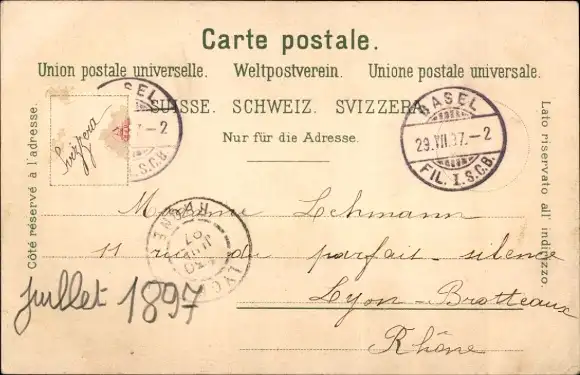 Carte postale.
Union postale universelle. Weltpostverein. Unione postale universale.
SUISSE. SCHWEIZ. SVIZZERA
Nur für die Adresse.
Côté réservé à l'adresse.
Lato riservato all' indirizzo.
Svizzera
BASEL
-2
I.S.C.B.
BASEL
29.VII.97.-2
FIL. I.S.C.B.
RHONE
97
LYO
Madame Lehmann
11 rue du parfait-silence
Lyon-Brotteaux
Rhône
juillet 1897